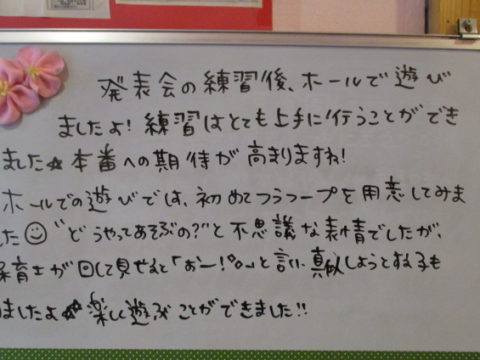 発表会の練習後、ホールで遊び
ましたよ!練習はとても上手に行うことができ
ました☆本番への期待が高まりますね!
ホールでの遊びでは、初めてフラフープを用意してみま
した☺"どうやってあそぶの?"と不思議な表情でしたが、
保育士が回して見せると「おー!°o。」と言い、真似しようとする子も
いましたよ☆楽しく遊ぶことができました!!